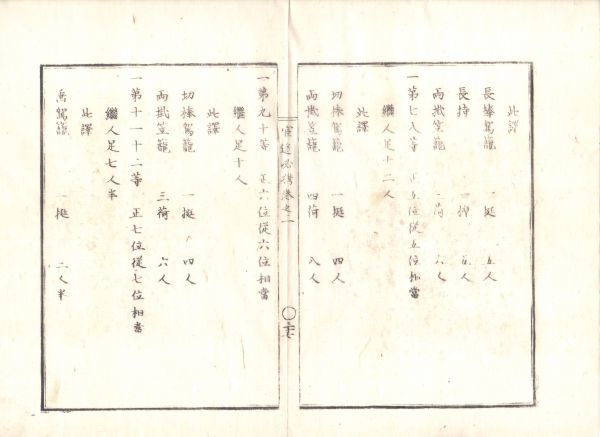 此譯
長棒駕籠 一挺 五人
長持 一棹 五人
両掛笠籠 三荷 六人
一第七八等 正五位従五位相當
継人足十二人
此譯
切棒駕籠 一挺 四人
両掛笠籠 四荷 八人
宦途必携巻之一
一第九十等 正六位従六位相當
継人足十人
此譯
切棒駕籠 一挺 四人
両掛笠籠 三荷 六人
一第十一十二等 正七位従七位相當
継人足七人半
此譯
垂駕籠 一挺 二人半